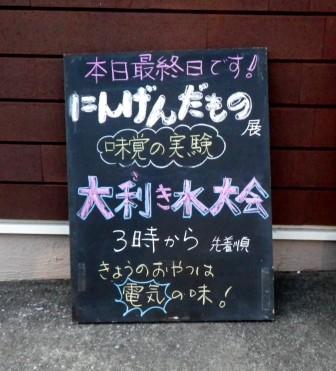 本日最終日です!
にんげんだもの
展
味覚の実験
大利き水大会
3時から 先着順
きょうのおやつは
電気の味!